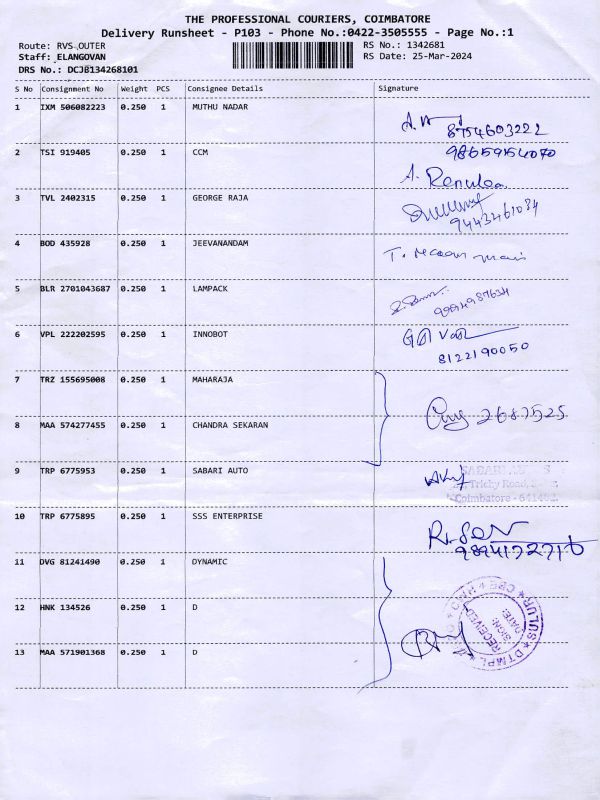 THE PROFESSIONAL COURIERS, COIMBATORE
Delivery Runsheet - P103 - Phone No.:0422-3505555 - Page No.:1
Route: RVS OUTER RS No.: 1342681
Staff: ELANGOVAN RS Date: 25-Mar-2024
DRS No.: DCJB134268101
S No Consignment No Weight PCS Consignee Details Signature
1 IXM 506082223 0.250 1 MUTHU NADAR
8754603222
2 TSI 919405 0.250 1 CCM 9865954070
A. Renuka
3 TVL 2402315 0.250 1 GEORGE RAJA
9443461034
4 BOD 435928 0.250 1 JEEVANANDAM
5 BLR 2701043687 0.250 1 LAMPACK
9994987634
6 VPL 222202595 0.250 1 INNOBOT
8122190050
7 TRZ 155695008 0.250 1 MAHARAJA
2687525
8 MAA 574277455 0.250 1 CHANDRA SEKARAN
9 TRP 6775953 0.250 1 SABARI AUTO
SABARI
Trichy Road,
Coimbatore - 641402.
10 TRP 6775895 0.250 1 SSS ENTERPRISE
11 DVG 81241490 0.250 1 DYNAMIC
12 HNK 134526 0.250 1 D
13 MAA 571901368 0.250 1 D
DTMPL SULUR
RECEIVED
SIGN:
DATE: